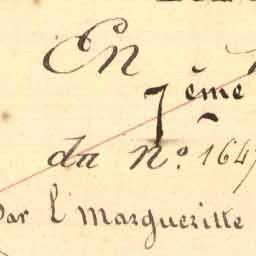 En
7ème
du No. 1647
Par E. Margueritte